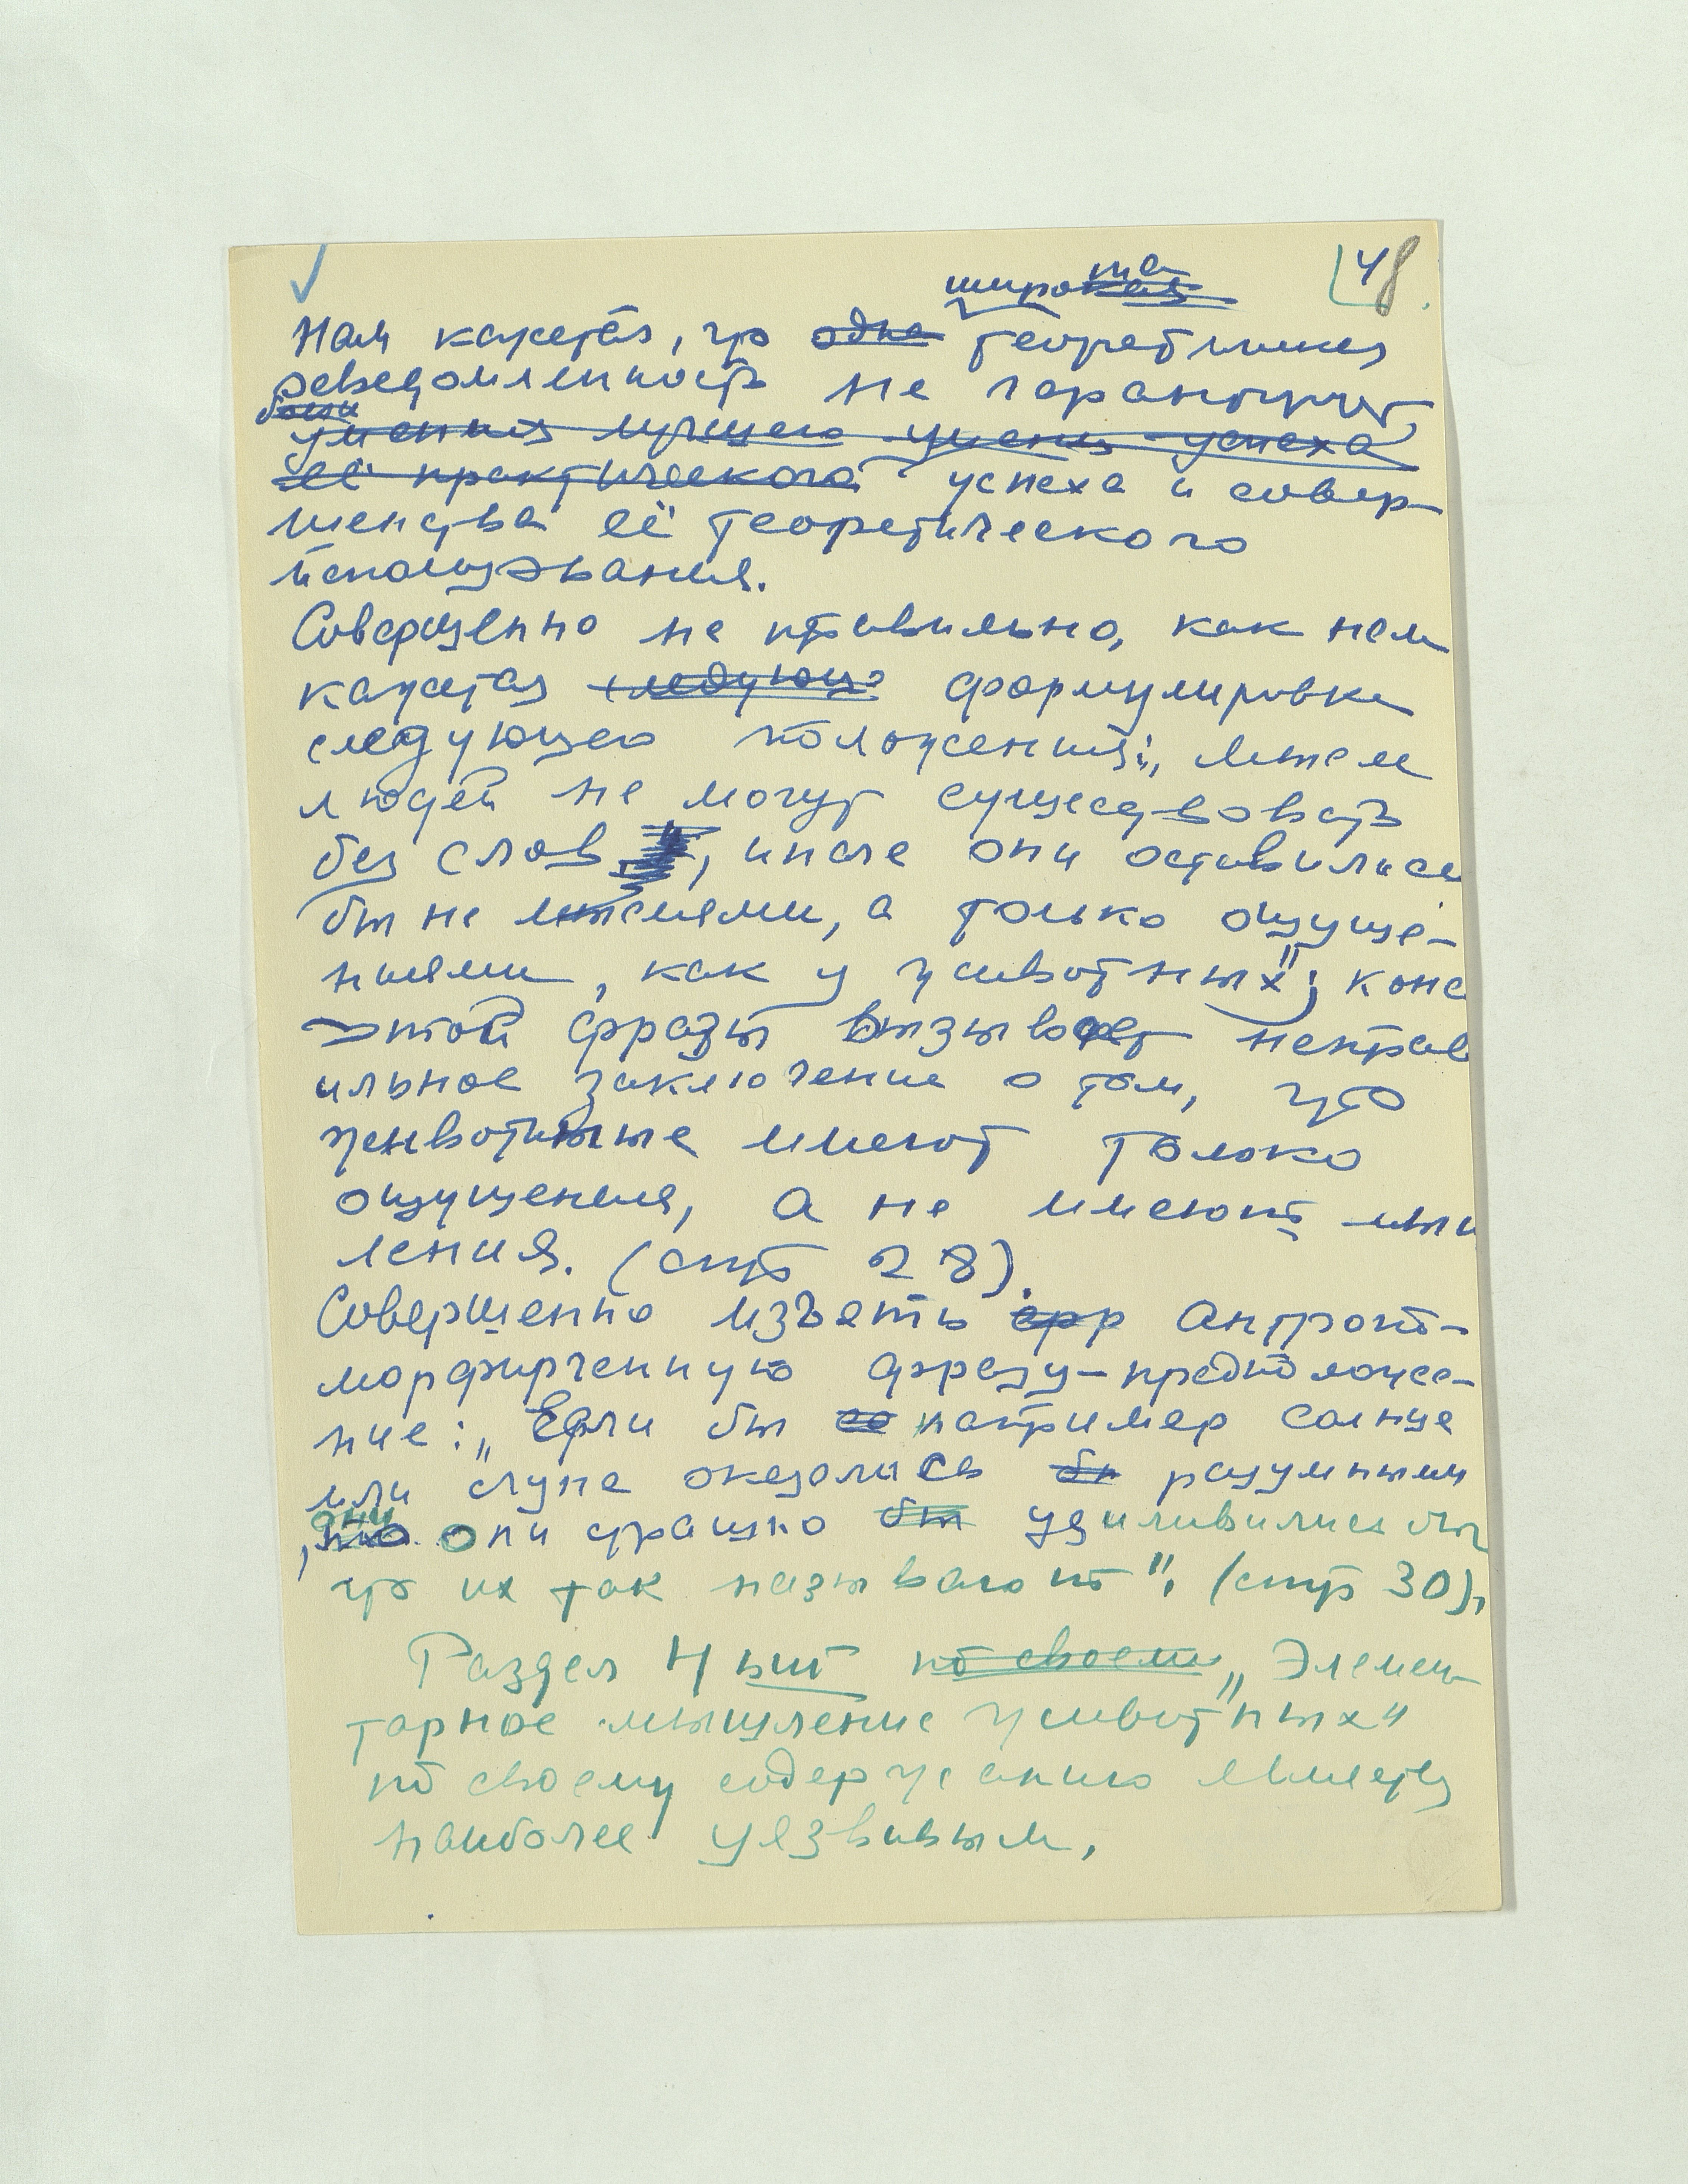 48
широта
Нам кажется, что одна теоретическая
осведомленность не гарантирует
умения лучшего успеха
её практического успеха и совер-
шенства её теоретического
использования.
Совершенно не правильно, как нам
кажется следующе формулировка
следующего положения: „мысли
людей не могут существовать
без слов, иначе они оставились
бы не мыслями, а только ощуще-
ниями, как у животных"; конец
этой фразы вызывает неправ
ильное заключение о том, что
животные имеют только
ощущения, а не имеют мыш
ления. (стр 28).
Совершенно изъять фр антропо-
морфирченную фразу-предположе-
ние: „Если бы со например солнце
или луна оказались бы разумными
, то они страшно бы удиливились бы
что их так называют". (стр 30).
Раздел 4ый по своем „Элемен
тарное мышление животных"
по своему содержанию является
наиболее уязвивым.